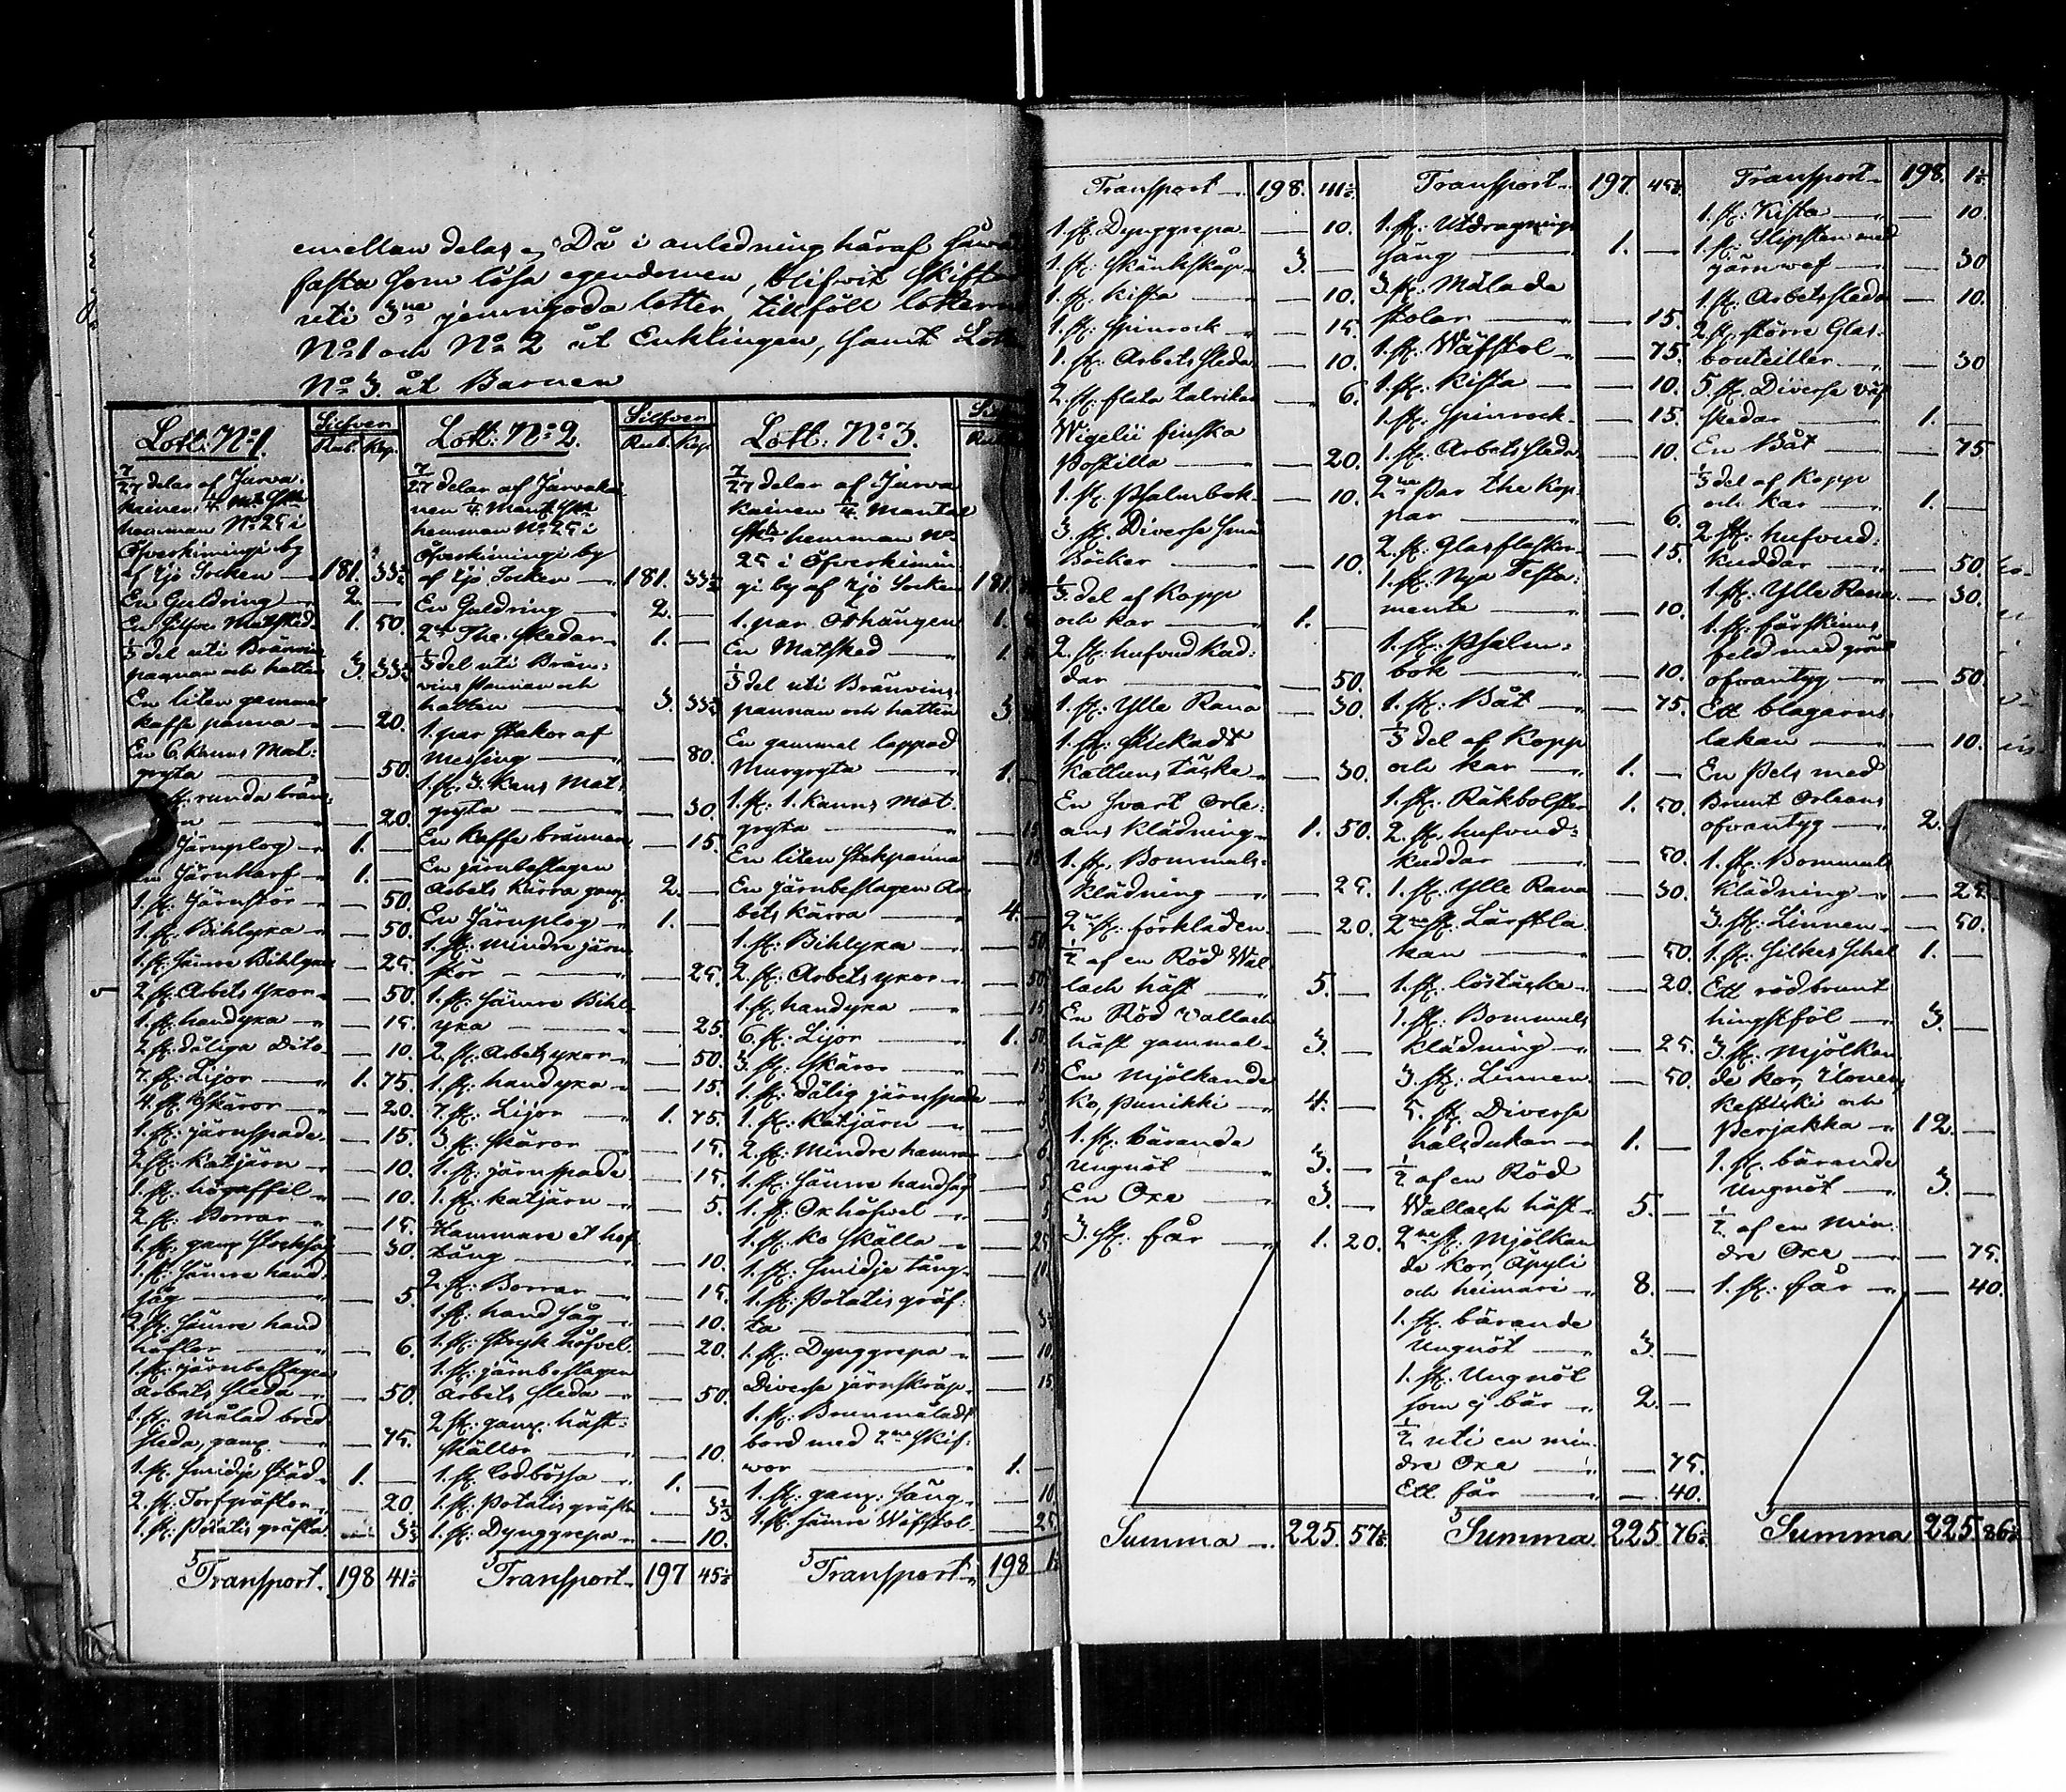 emellan delas, Då i anledning häraf såwäl
fasta som lösa egendomen, blifvit skiftad
uti 3ne jemngoda lotter, tillföll lotterne
No 1 och No 2 åt Enklingen, samt Lott
No 3. åt Barnen
Lott: No 1.
Silfver
Rub. Kop.
7/27 delar af Jurva-
kainen 1/4 Mtl Skatte
hemman No 25 i
Öfverkiiminge by
af Ijo Socken 181. 33 1/3
En Guldring 2. —
En Silfver Matsked 1. 50.
1/3 del uti Bränvins
pannan och hatten 3. 33 1/3
En liten gammal
kaffe panna — 20.
En 6. kanns Mat-
gryta — 50.
runda brän-
— 20.
Järnplog 1. —
En Järnharf 1. —
1. st. Järnstör — 50.
1. st. Bihlyxa — 50.
1. st. sämre Bihlyxa — 25.
2. st. Arbets yxor — 50.
1. st. handyxa — 15.
2. st. dåliga Dito — 10.
7. st. Lijor 1. 75.
4. st. Skäror — 20.
1. st. järnspade — 15.
2. st. Katjärn — 10.
1. st. högaffel — 10.
2. st. Borrar — 15.
1. st. gam. Stocksåg — 30.
1. st. sämre hand-
såg — 5.
2. st. sämre hand
höflar — 6.
1. st. järnbeslagen
Arbets släda — 50.
1. st. målad bred
släda, gam. — 75.
1. st. Smidje städ 1. —
2. st. Torfgräftor — 20.
1. st. Potatis gräfta — 3 1/3
Transport. 198 41 1/2
Lott: No 2.
Silfver
Rub. Kop.
7/27 delar af Jurvakai
nen 1/4 Mant. Skatte
hemman No 25 i
Öfverkiiminge by
af Ijo Socken 181. 33 1/3
En Guldring 2. —
2ne The Skedar 1. —
1/3 del uti Brän-
vins Pannan och
hatten 3. 33 1/3
1. par Stakar af
Messing — 80.
1. st. 3. kans Mat-
gryta — 30.
En Kaffe brännare — 15.
En järnbeslagen
Arbets Kärra gam. 2. —
En Järnplog 1. —
1. st. mindre järn-
stör — 25.
1. st. sämre Bihl-
yxa — 25.
2. st. Arbets yxor — 50.
1. st. handyxa — 15.
7. st. Lijor 1. 75.
3. st. Skäror — 15.
1. st. järnspade — 15.
1. st. katjärn — 5.
Hammare et hof
tång — 10.
2. st. Borrar — 15.
1. st. hand såg — 10.
1. st. Stryk höfvel — 20.
1. st. järnbeslagen
Arbets släda — 50.
2. st. gam. häst-
skällor — 10.
1. st. Lodbössa 1. —
1. st. Potatis gräfta — 3 1/3
1. st. Dynggrepa — 10.
Transport 197 45 1/2
Lott. No 3.
7/27 delar af Jurva
kainen 1/4. Mantal
Skatte hemman No
25 i Öfverkiimin-
gi by af Ijo Socken 181.
1. par Örhängen 1.
En Matsked 1.
1/3 del uti Bränvins
pannan och hatten 3.
En gammal lappad
Murgryta 1. —
1. st. 1. kanns Mat-
gryta — 15
En liten Stekpanna — 15.
En järnbeslagen Ar
bets kärra 4. —
1. st. Bihlyxa — 50.
2. st. Arbets yxor — 50.
1. st. handyxa — 15.
6. st. Lijor 1. 50.
3. st. Skäror — 15
1. st. dålig järnspade — 5
1. st. Katjärn — 5
2. st. Mindre hamrar — 6
1. st. sämre handsåg — 5
1. st. Oxhöfvel — 5
1. st. Ko skälla — 25
1. st. Smidje tång — 10.
1. st. Potatis gräf-
ta — 3 1/3
1. st. Dynggrepa — 10.
Diverse järnskräp — 15
1. st. Brunmåladt
bord med 2ne skif-
vor 1. —
1. st. gam. säng — 10
1. st. sämre Wäfstol — 25
Transport 198 1 1/2
Transport 198. 41 1/2
1. st. Dynggrepa — 10.
1. st. Skänkskåp 3. —
1. st. Kista — 10.
1. st. Spinrock — 15.
1. st. Arbets släda — 10.
2. st. flata talrikar — 6.
Wigelii finska
Postilla — 20.
1. st. Psalmbok — 10.
3. st. Diverse små
Böcker — 10.
1/3 del af Kopp
och kar 1. —
2. st. hufvud kud-
dar — 50.
1. st. Ylle Rana — 30.
1. st. Stickadt
Kattuns täcke — 30.
En Svart Orle-
ans klädning 1. 50.
1. st. Bommuls-
klädning — 25.
2ne st. förkläden — 20.
1/2 af en Röd Wal-
lach häst 5. —
En Röd Vallach
häst gammal 3. —
En Mjölkande
Ko, Punikki 4. —
1. st. bärande
Ungnöt 3. —
En Oxe 3. —
3. st. får 1. 20.
Summa 225. 57 1/2
Transport 197. 45 1/2
1. st. Utdragnings
säng 1. —
3. st. Målade
stolar — 15.
1. st. Wäfstol — 75.
1. st. Kista — 10.
1. st. Spinrock — 15.
1. st. Arbets släda — 10.
2ne Par the Kop-
par — 6.
2. st. Glasflaskor — 15.
1. st. Nya Testa-
mente — 10.
1. st. Psalm-
bok — 10.
1. st. Båt — 75.
1/3 del af Kopp
och kar 1. —
1. st. Räkbolster 1. 50.
2. st. hufvud-
kuddar — 50.
1. st. Ylle Rana — 30.
2ne st. Lärftla
kan — 50.
1. st. löstäcke — 20.
1. st. Bommuls
klädning — 25.
3. st. Linnen — 50.
5. st. Diverse
halsdukar 1. —
1/2 af en Röd
Wallach häst 5. —
2ne st. Mjölkan
de kor, Äpyli
och heimari 8. —
1. st. bärande
Ungnöt 3. —
1. st. Ungnöt
som ej bär 2. —
1/2 uti en min-
dre Oxe — 75.
Ett får — 40.
Summa 225. 76 1/2
Transport 198. 1 1/2
1. st. Kista — 10.
1. st. Slipsten med
järn vef — 30
1. st. Arbetssläda — 10.
2. st. större Glas-
bouteiller — 30
5. st. Diverse väf
skedar 1. —
En Båt — 75
1/3 del af Kopp
och kar 1. —
2. st. hufvud-
kuddar — 50.
1. st. Ylle Rana — 30.
1. st. fårskinns
fäld med grönt
ofvantyg — 50.
Ett blagarns
lakan — 10.
En Pels med
Brunt Orleans
ofvantyg 2.
1. st. Bommuls
klädning — 25.
3. st. Linnen — 50.
1. st. Silkes schal 1. —
Ett rödbrunt
hingstföl 3. —
3. st. Mjölkan
de kor,
och
Perjakka 12. —
1. st. bärande
Ungnöt 3. —
1/2 af en Min-
dre Oxe — 75.
1. st. får — 40.
Summa 225 86 1/2